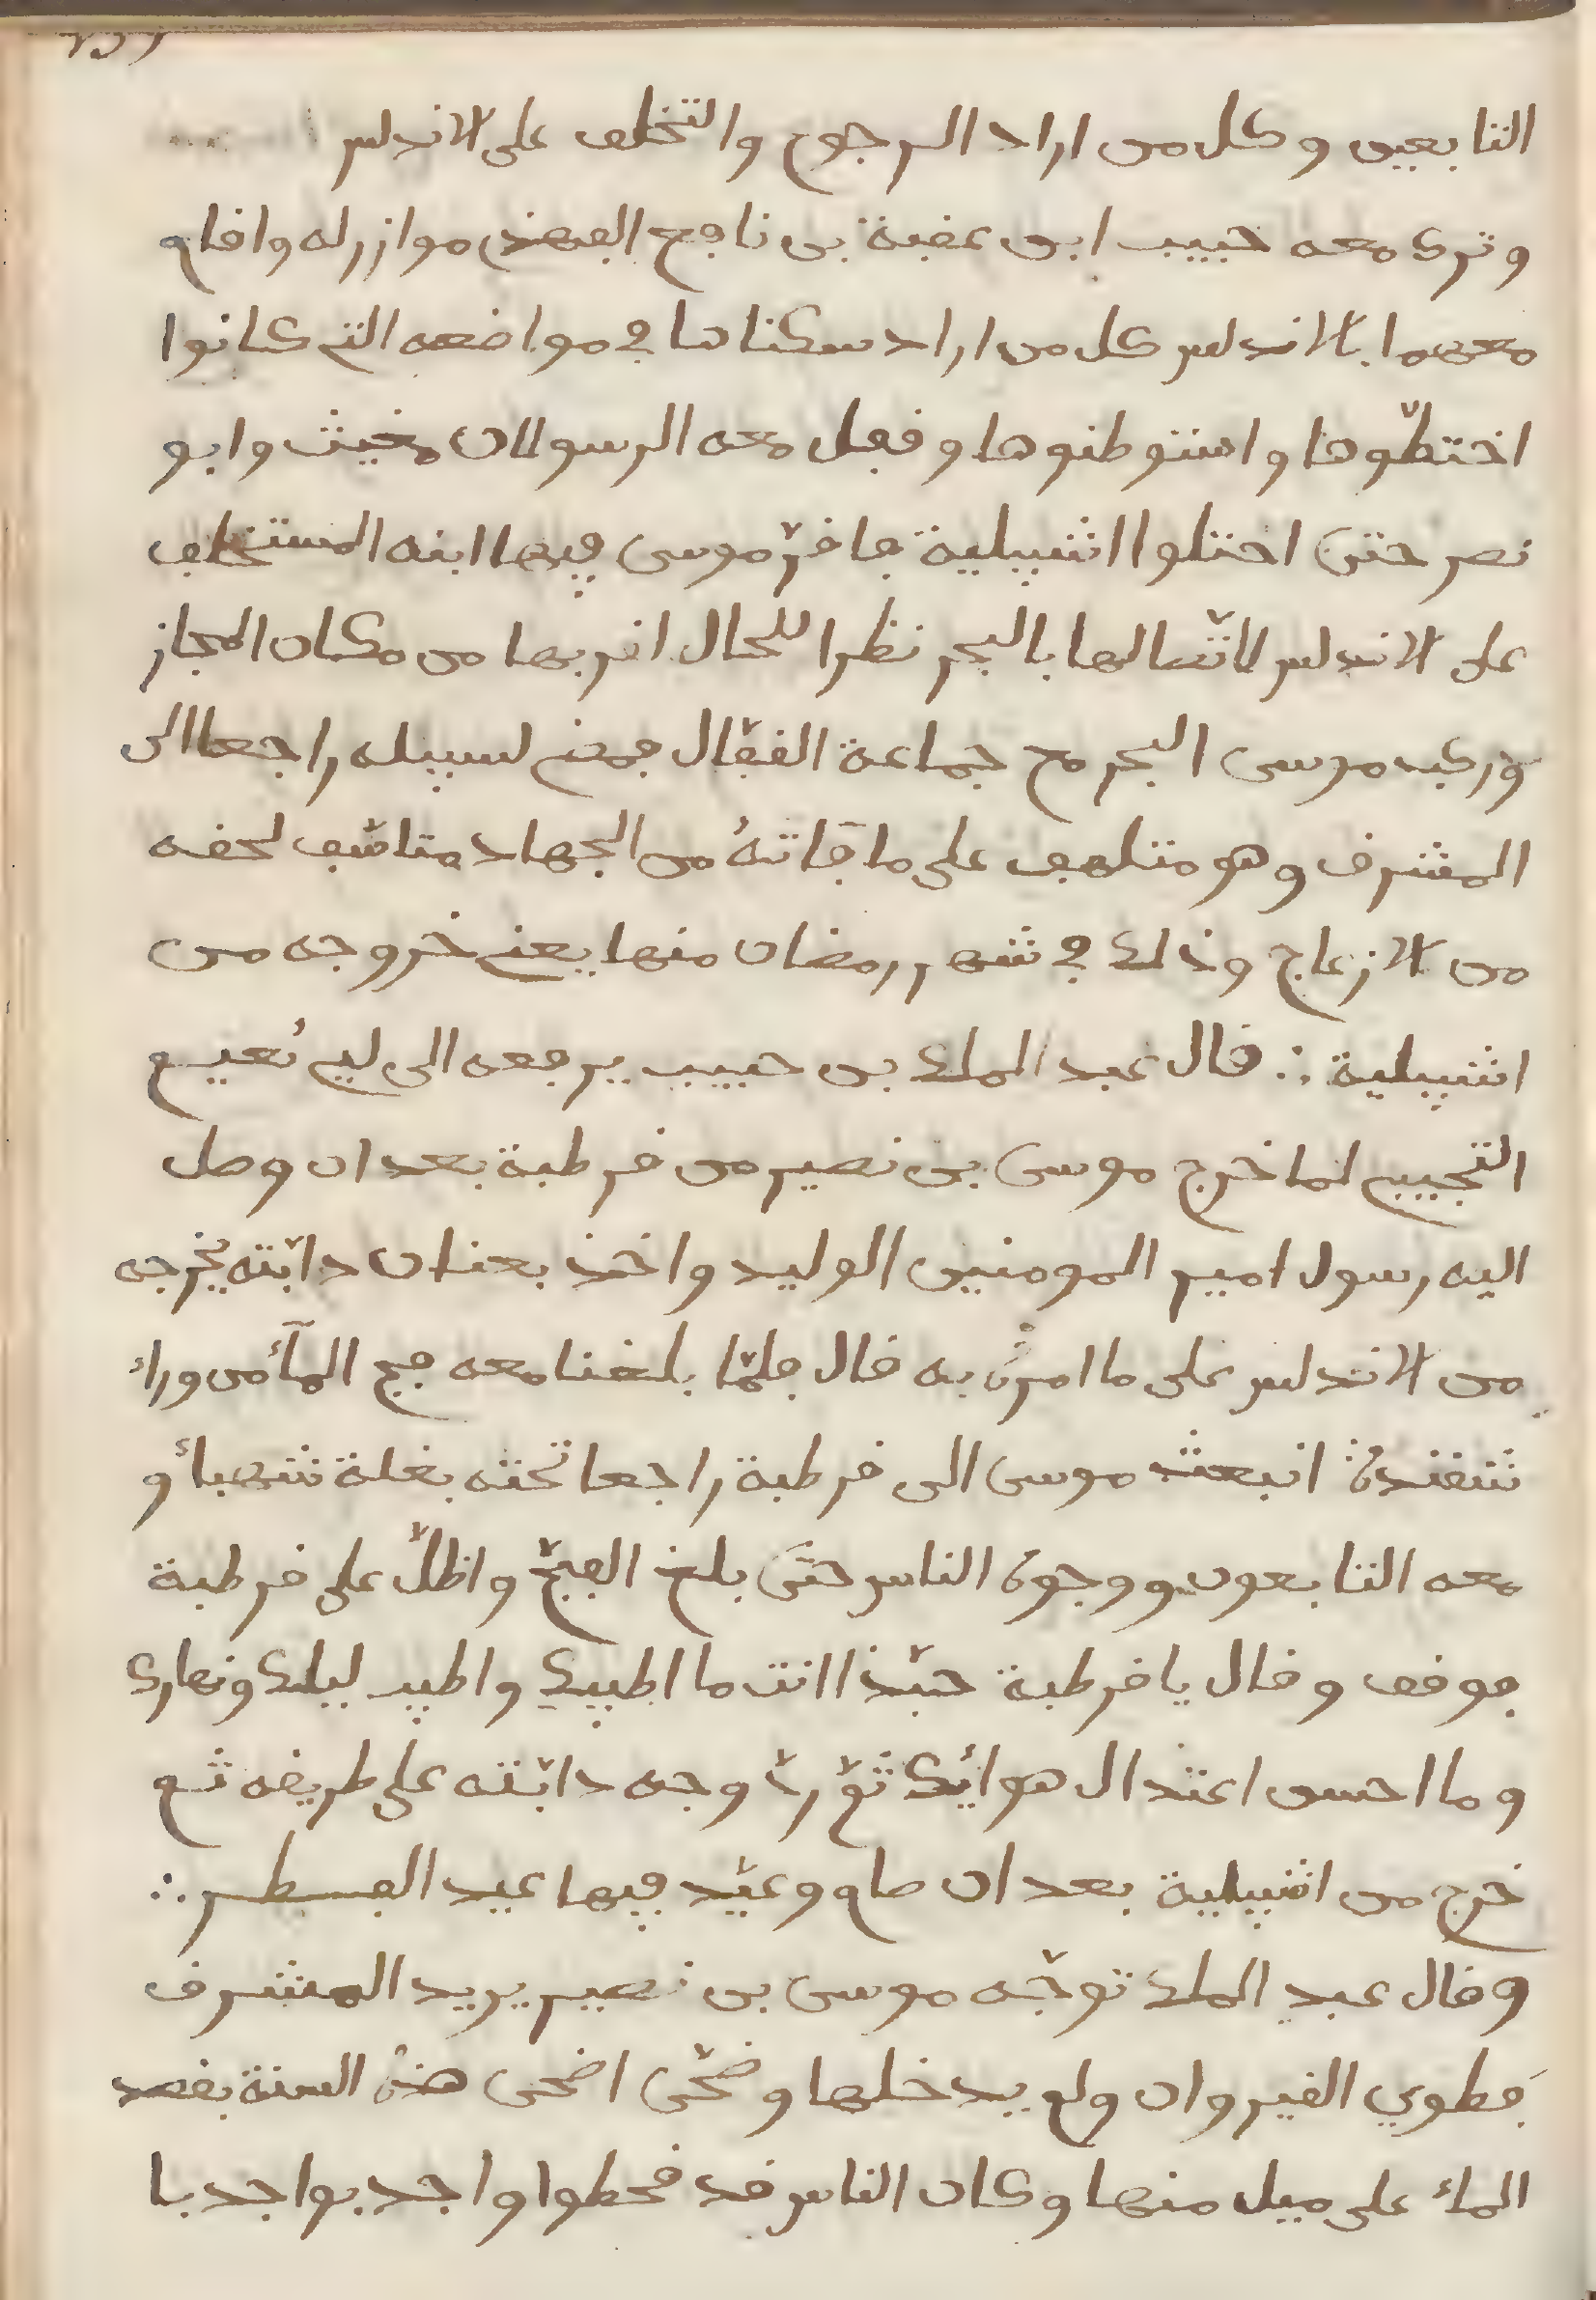 التابعين وكل من اراد الرجوع والتخلف على الاندلس
وترك معه حبيب ابن عقبة بن نافع الفهري موازر له واقام
معهما بالاندلس كل من اراد سكناها في مواضعه التي كانوا
اختطّوها واستوطنوها وقفل معه الرسولان مغيث وابو
نصر حتى احتلوا اشبيلية فاقرّ موسى فيها ابنه المستخلف
على الاندلس لاتّصالها بالبحر نظرا للحال اقربها من مكان المجاز
وركب موسى البحر مع جماعة القفّال فمضى لسبيله راجعا الى
المشرق وهو متلهف على ما فاتهُ من الجهاد متاسّف لحقه
من الازعاج وذلك في شهر رمضان منها يعني خروجه من
اشبيلية ∴ قال عبد الملك بن حبيب يرفعه الى لبي نُعيم
التجيبي لما خرج موسى بن نصير من قرطبة بعد ان وصل
اليه رسول امير المومنين الوليد واخذ بعنان دابّته يخرجه
من الاندلس على ما امره به قال فلمّا بلغنا معه فج المآئمن وراء
شقندة انبعث موسى الى قرطبة راجعا تحته بغلة شهباء و
معه التابعون ووجوه الناس حتَى بلغ الفجّ واظلّ على قرطبة
فوقف وقال يا قرطبة حبّذا انت ما اطيبك واطيب ليلك ونهارك
وما احسن اعتدال هوائك ثمّ ردّ وجه دابّته على طريقه ثم
خرج من اشبيلية بعد ان صام وعيّد فيها عيد الفطر ∴
وقال عبد الملك توجّه موسى بن نصير يريد المشرق
فطوي القيروان ولم يدخلها وضحّى اضحى هذه السنة بقصد
الماء على ميل منها وكان الناس قد قحطوا واجدبوا جدبا